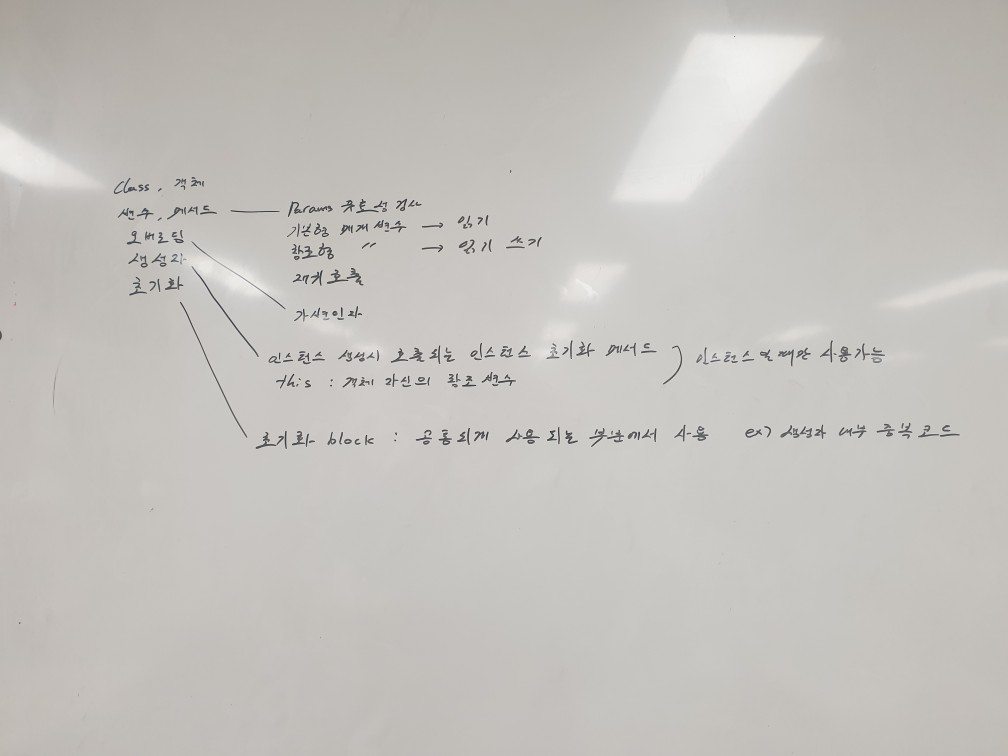 Class, 객체
변수, 메서드 — Params 유효성 검사
기본형 매개변수 → 읽기
참조형 〃 → 읽기 쓰기
재귀호출
오버로딩
생성자
초기화
가변인자
인스턴스 생성시 호출되는 인스턴스 초기화 메서드
this : 객체 자신의 참조 변수
) 인스턴스일때만 사용가능
초기화 block : 공통되게 사용되는 부분에서 사용 ex) 생성자 내부 중복코드